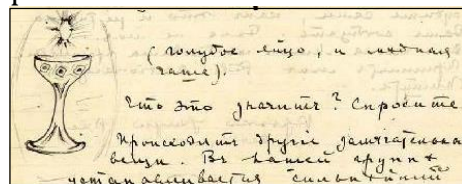 (голубое яйцо, и медная
чаше),
Что это значитъ? Спросите
Происходитъ другiе замѣчательные
вещи. Въ нашей группѣ
устанавливается сильнѣйшiй